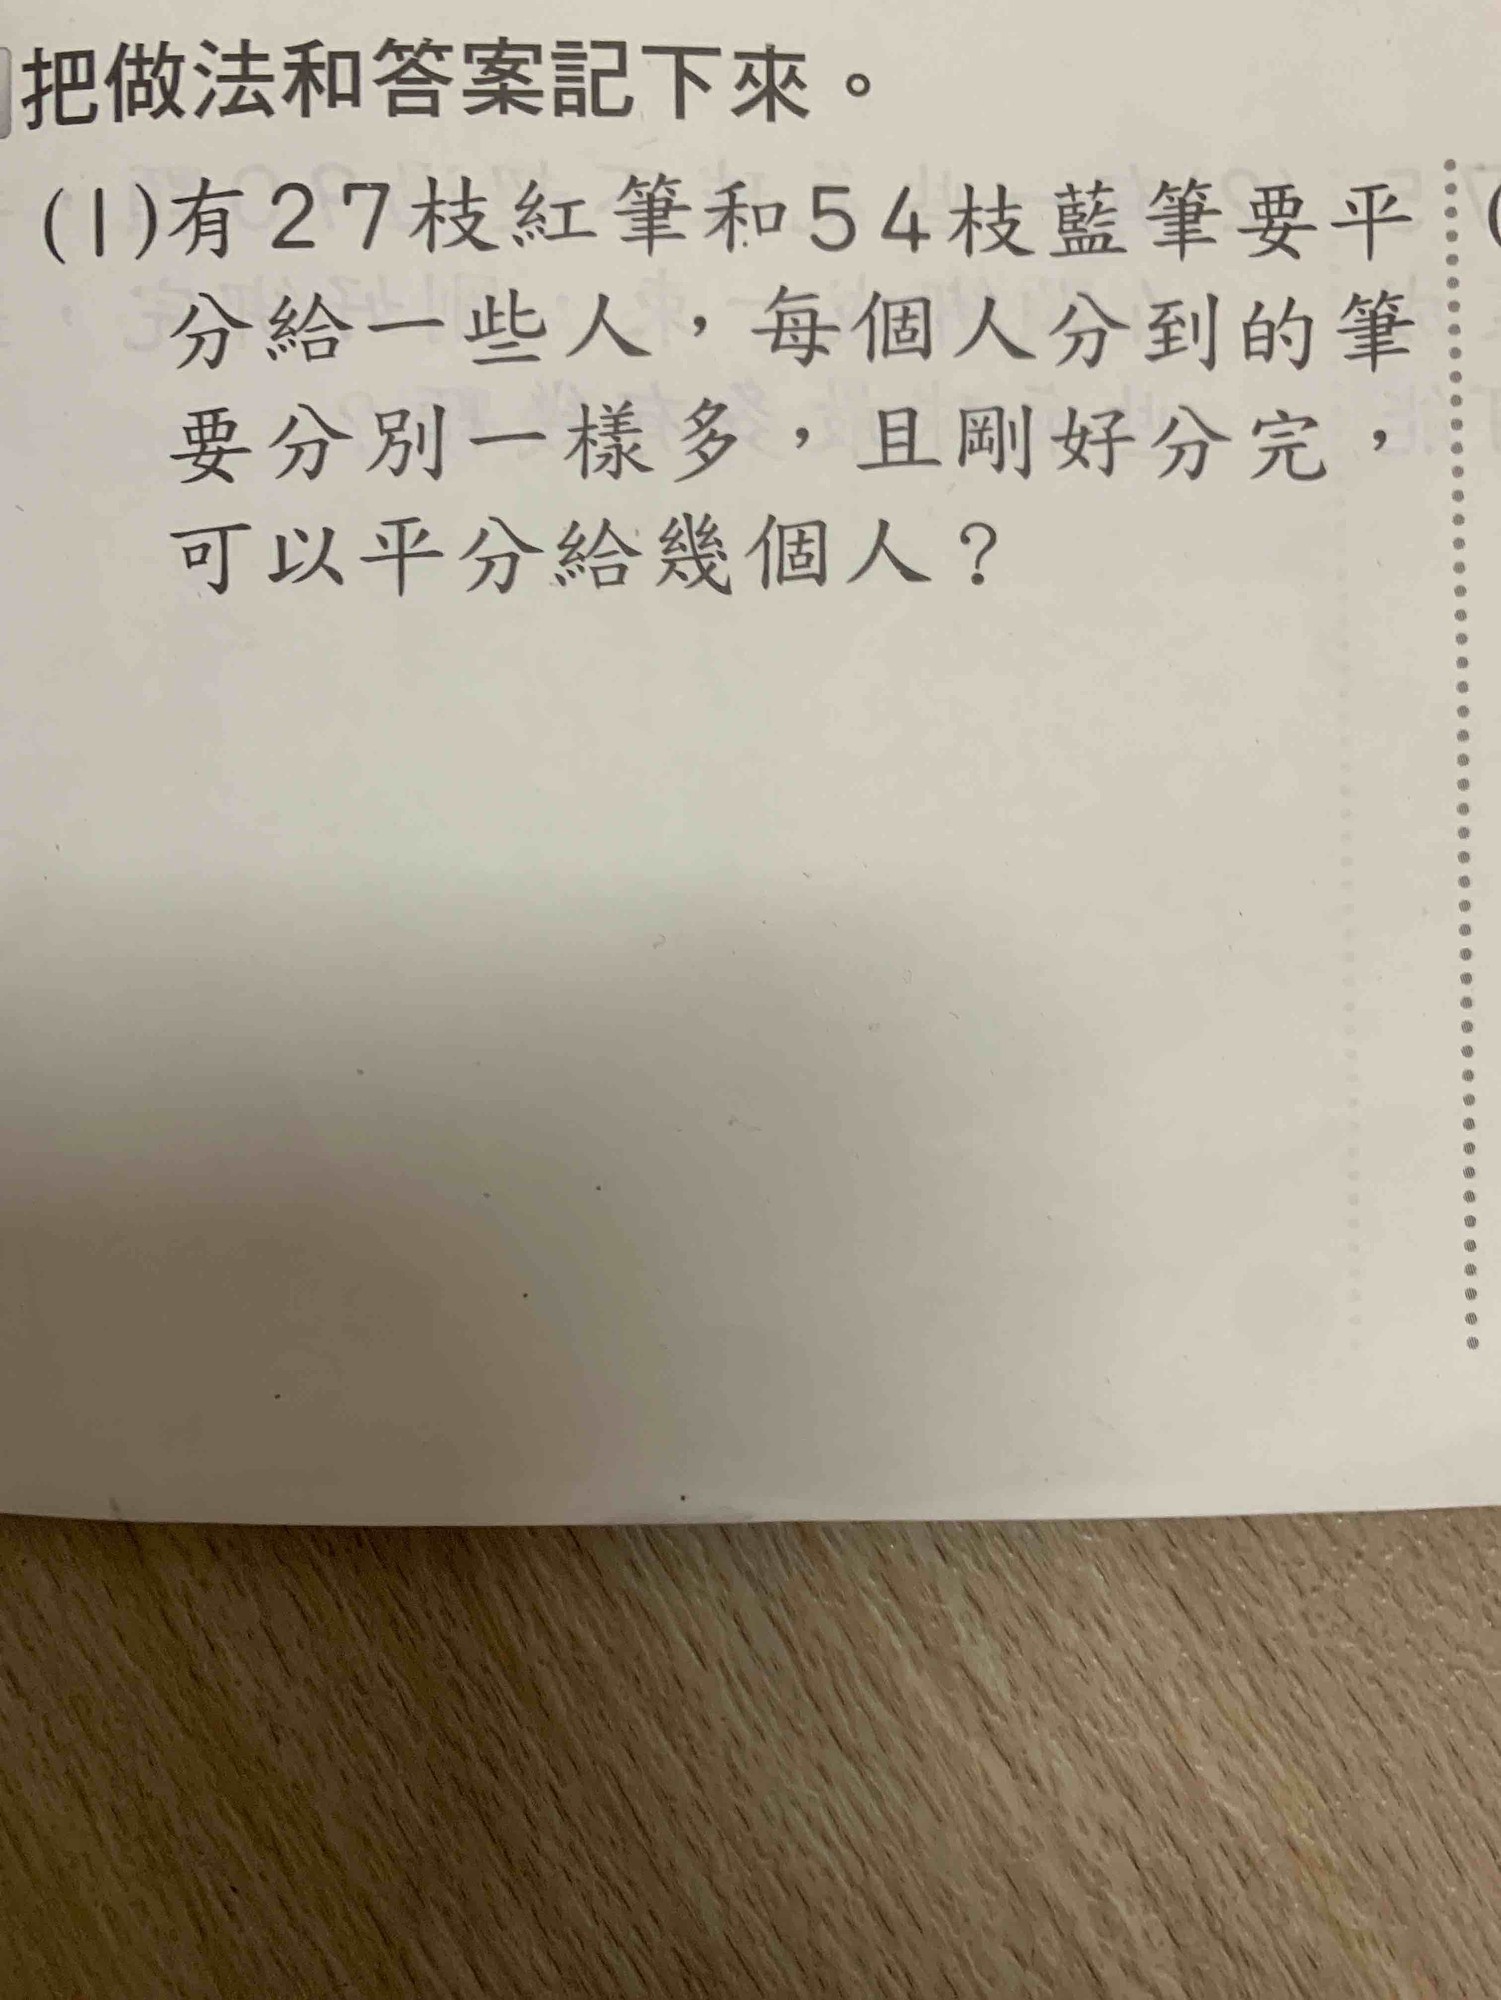 把做法和答案記下來。
(1)有27枝紅筆和54枝藍筆要平
分給一些人,每個人分到的筆
要分別一樣多,且剛好分完,
可以平分給幾個人?